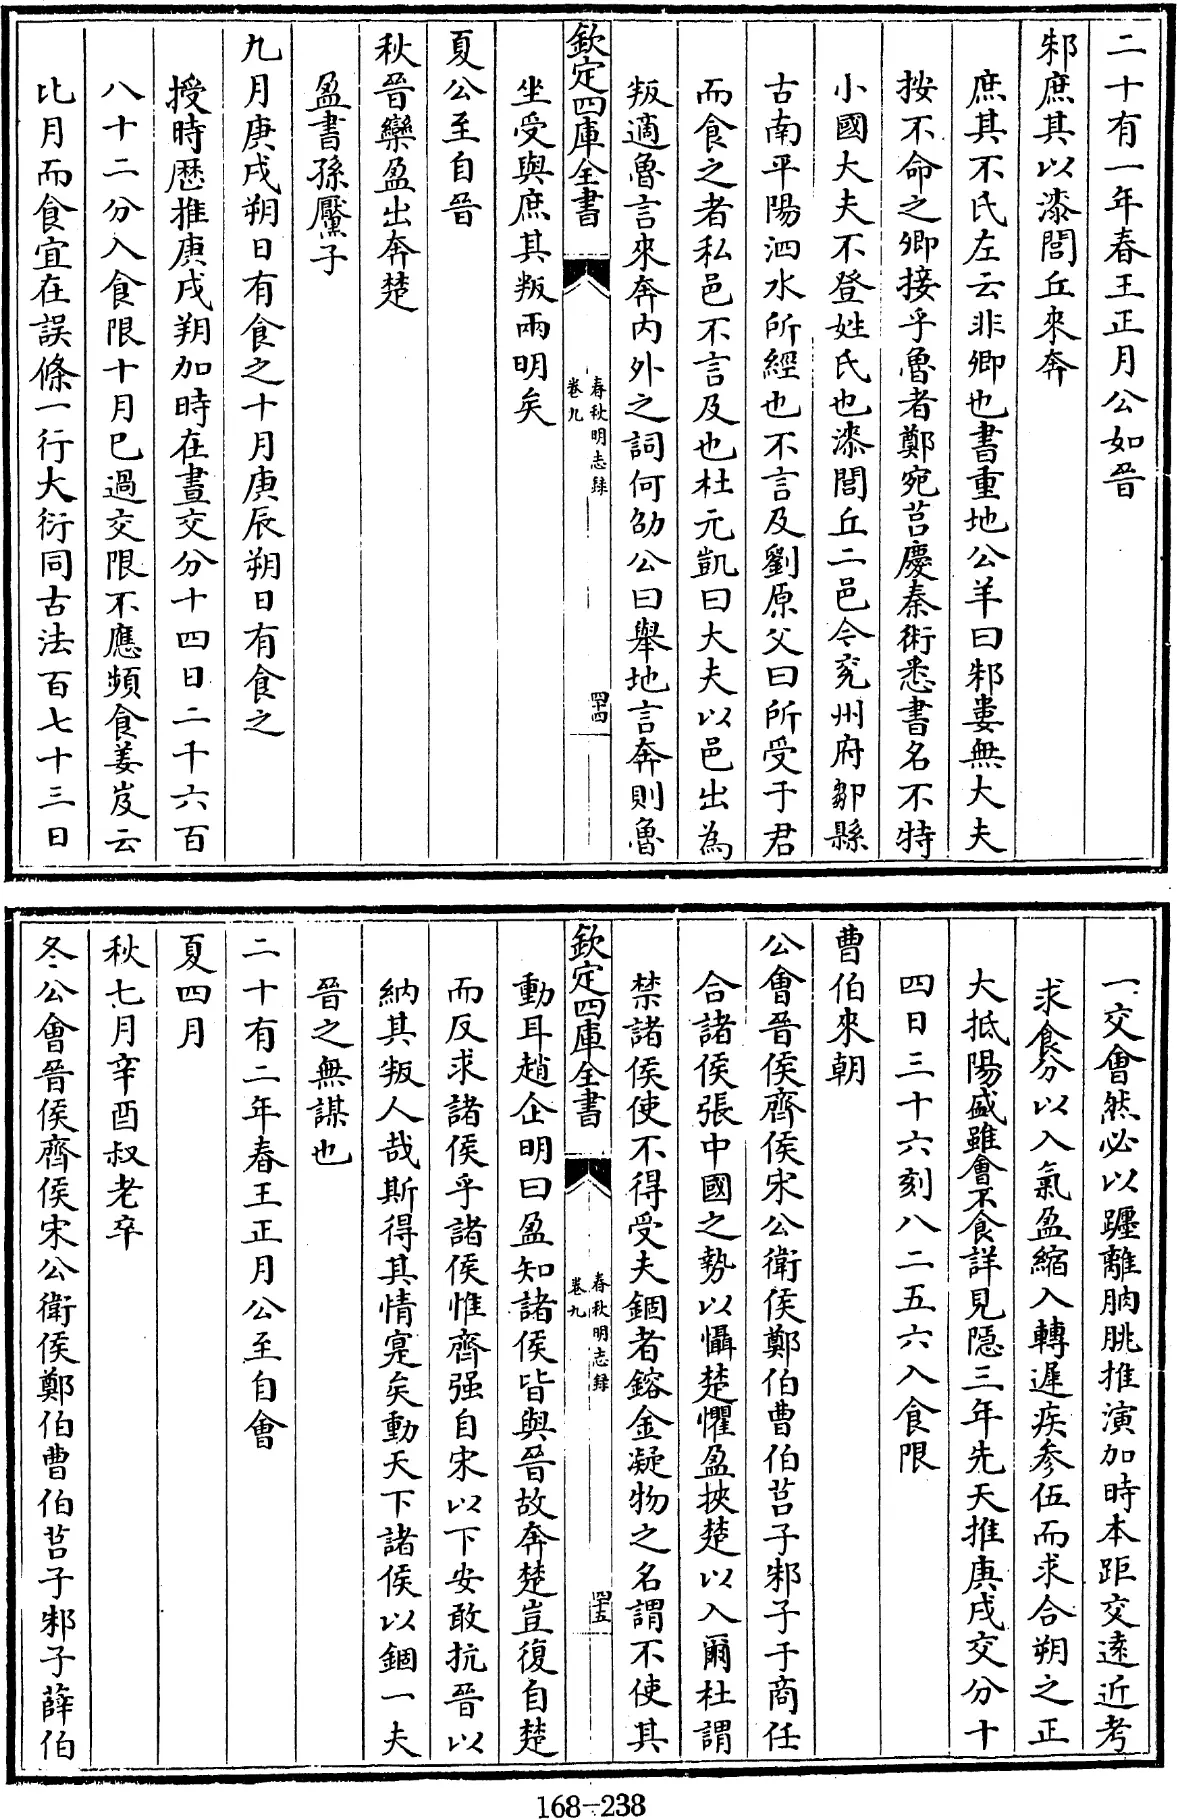 二十有一年春王正月公如晉
邾庶其以漆閭丘來奔
庶其不氏左云非卿也書重地公羊曰邾婁無大夫
按不命之卿接乎魯者鄭宛莒慶秦術悉書名不特
小國大夫不登姓氏也漆閭丘二邑今兖州府鄒縣
古南平陽泗水所經也不言及劉原父曰所受于君
而食之者私邑不言及也杜元凱曰大夫以邑出為
叛適魯言來奔内外之詞何劭公曰舉地言奔則魯
欽定四庫全書
春秋明志録
卷九
四十四
坐受與庶其叛兩明矣
夏公至自晉
秋晉欒盈出奔楚
盈書孫黶子
九月庚戌朔日有食之十月庚辰朔日有食之
授時歷推庚戌朔加時在晝交分十四日二千六百
八十二分入食限十月已過交限不應頻食姜岌云
比月而食宜在誤條一行大衍同古法百七十三日
一交會然必以躔離朒朓推演加時本距交逺近考
求食分以入氣盈縮入轉遲疾參伍而求合朔之正
大抵陽盛雖會不食詳見隠三年先天推庚戌交分十
四日三十六刻八二五六入食限
曹伯來朝
公會晉侯齊侯宋公衛侯鄭伯曹伯莒子邾子于商任
合諸侯張中國之勢以懾楚懼盈挾楚以入爾杜謂
禁諸侯使不得受夫錮者鎔金凝物之名謂不使其
欽定四庫全書
春秋明志録
卷九
四十五
動耳趙企明曰盈知諸侯皆與晉故奔楚豈復自楚
而反求諸侯乎諸侯惟齊强自宋以下安敢抗晉以
納其叛人哉斯得其情寔矣動天下諸侯以錮一夫
晉之無謀也
二十有二年春王正月公至自會
夏四月
秋七月辛酉叔老卒
冬公會晉侯齊侯宋公衛侯鄭伯曹伯莒子邾子薛伯
168-238